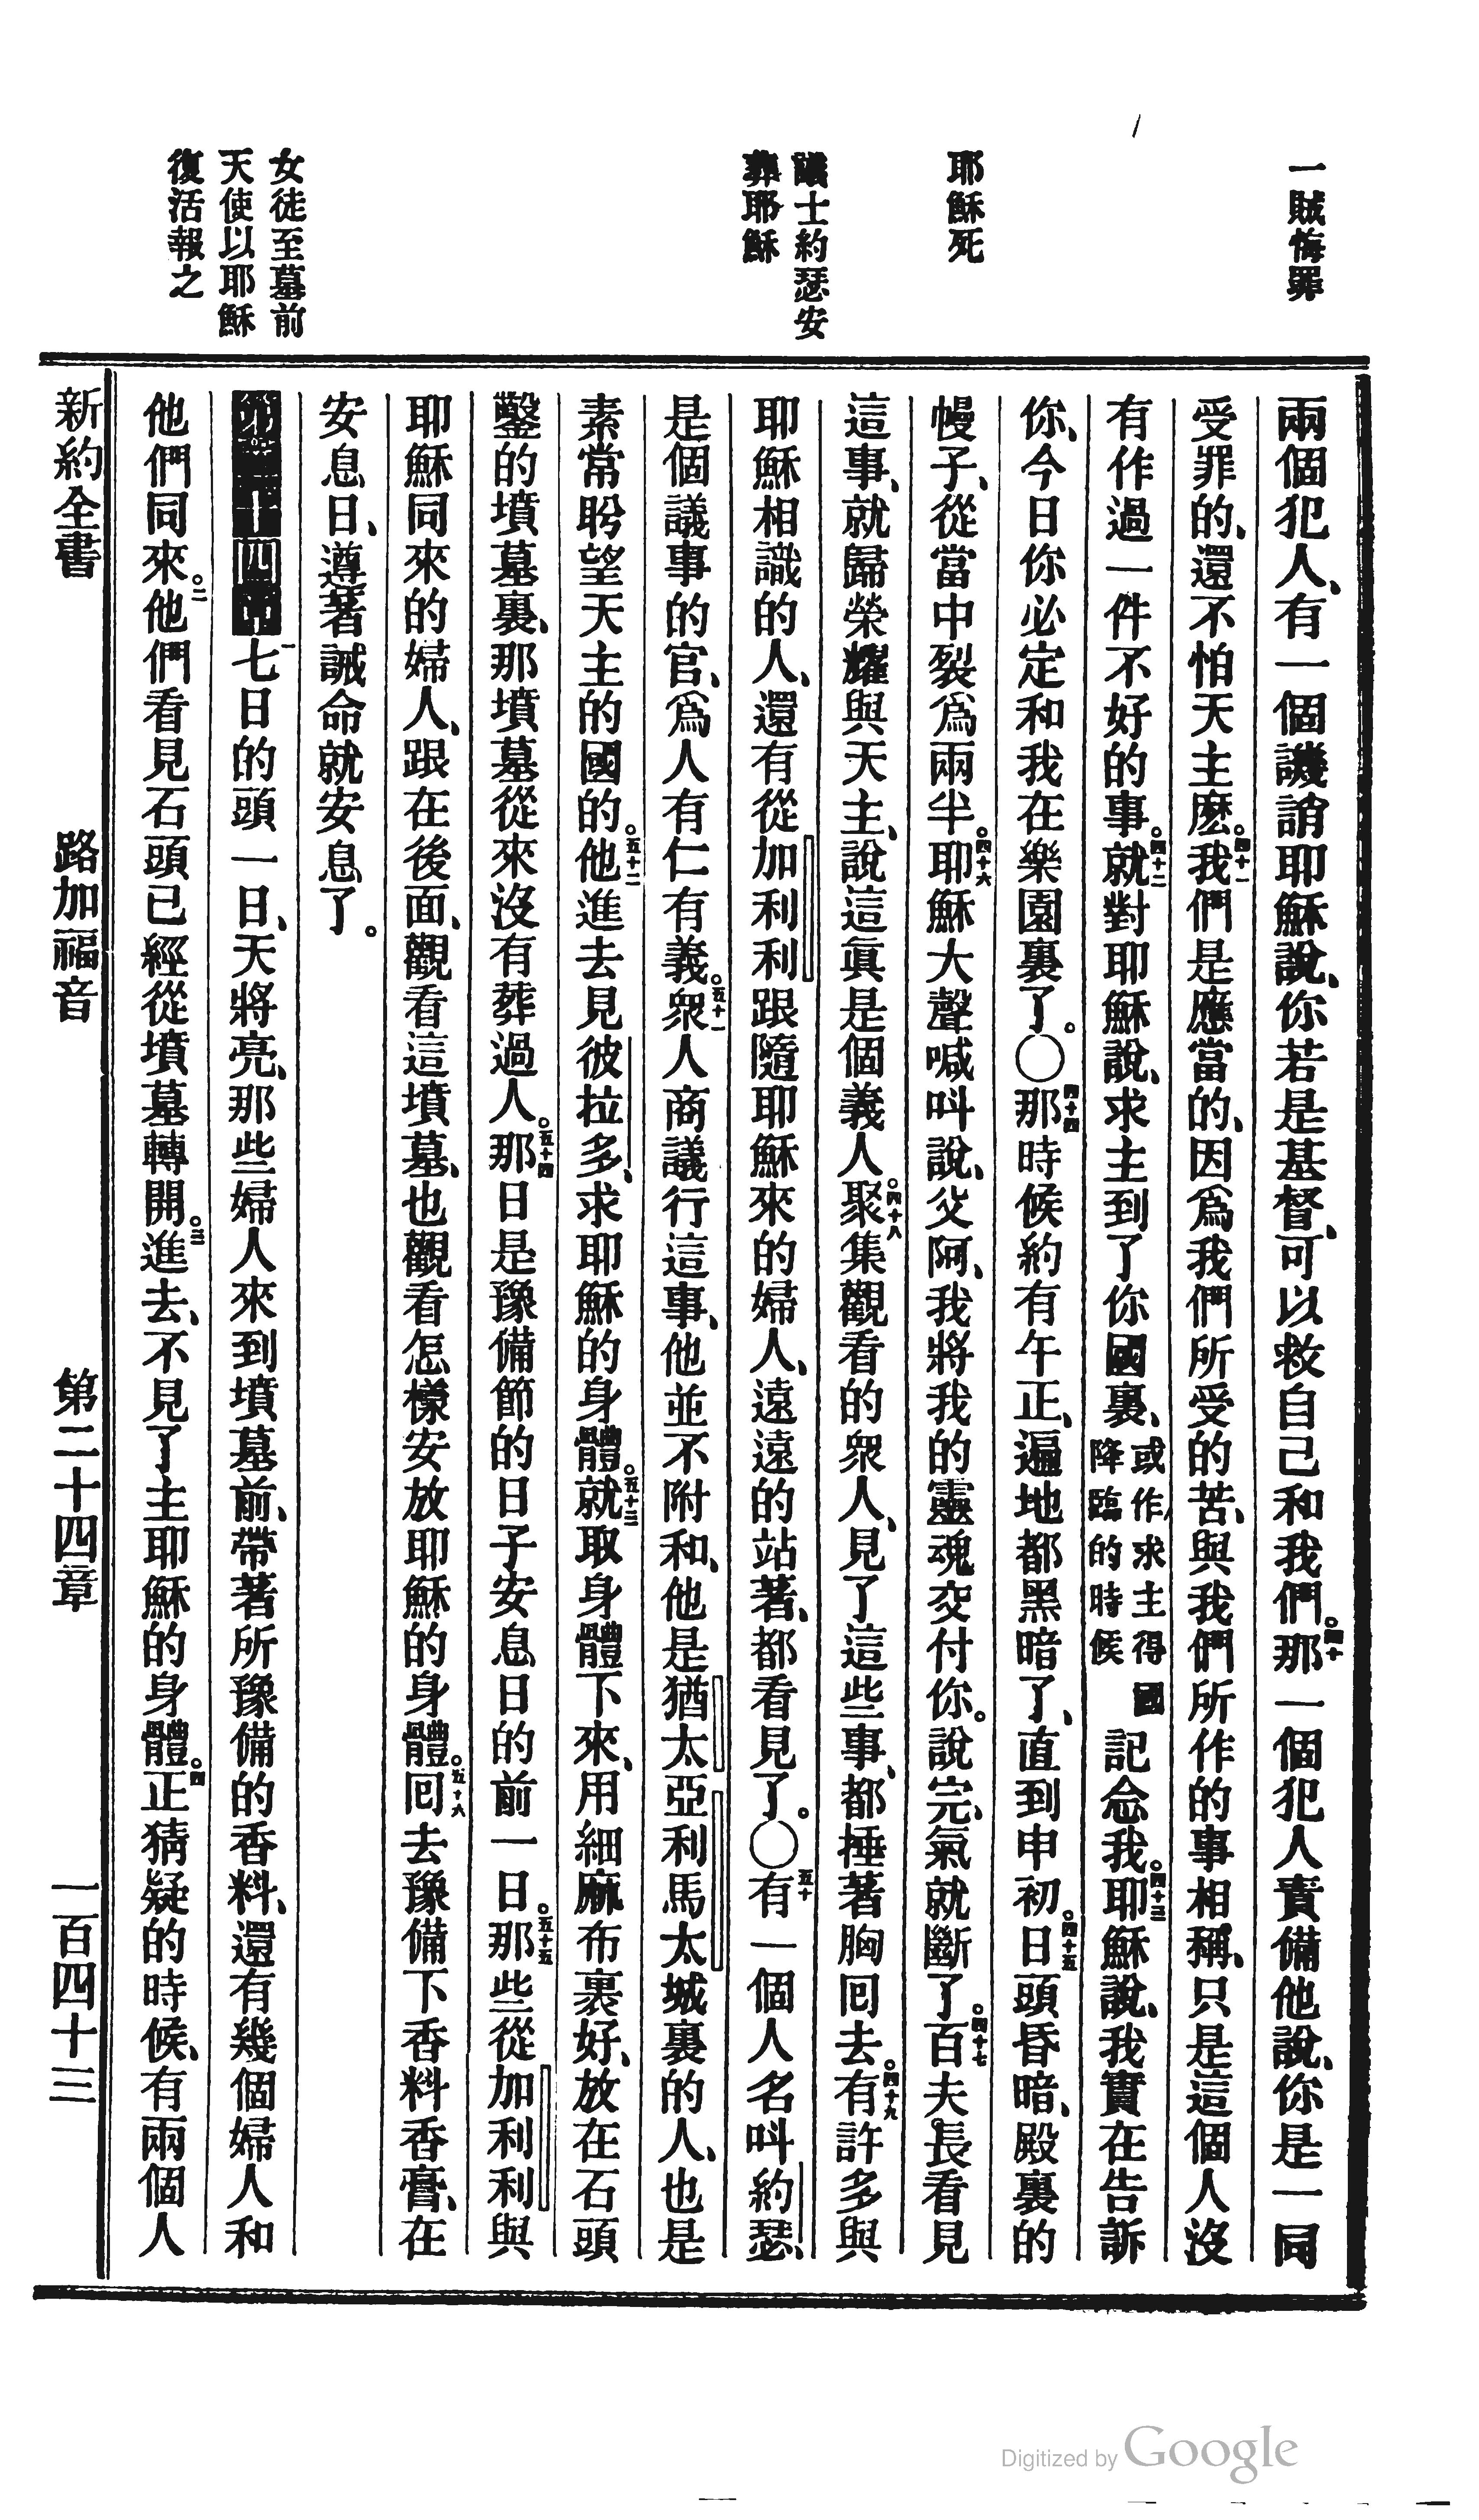 一賊悔罪
耶穌死
議士約瑟安
葬耶穌
女徒至墓前
天使以耶穌
復活報之
兩個犯人、有一個譏誚耶穌說、你若是基督、可以救自己和我們。四十那一個犯人責備他說、你是一同
受罪的、還不怕天主麽。四十一我們是應當的、因爲我們所受的苦、與我們所作的事相稱、只是這個人沒
有作過一件不好的事。四十二就對耶穌說、求主到了你國裏、或作求主得國降臨的時候記念我。四十三耶穌說、我實在告訴
你、今日你必定和我在樂園裏了。〇四十四那時候約有午正、遍地都黑暗了、直到申初。四十五日頭昏暗、殿裏的
幔子、從當中裂爲兩半。四十六耶穌大聲喊叫說、父阿、我將我的靈魂交付你。說完、氣就斷了。四十七百夫長看見
這事、就歸榮耀與天主、說這眞是個義人。四十八聚集觀看的衆人、見了這些事、都捶著胸回去。四十九有許多與
耶穌相識的人、還有從加利利跟隨耶穌來的婦人、遠遠的站著、都看見了。〇五十有一個人名叫約瑟、
是個議事的官、爲人有仁有義。五十一衆人商議行這事、他並不附和、他是猶太亞利馬太城裏的人、也是
素常盼望天主的國的。五十二他進去見彼拉多、求耶穌的身體。五十三就取身體下來、用細麻布裹好、放在石頭
鑿的墳墓裏、那墳墓從來沒有葬過人。五十四那日是豫備節的日子安息日的前一日。五十五那些從加利利與
耶穌同來的婦人、跟在後面、觀看這墳墓、也觀看怎樣安放耶穌的身體。五十六回去豫備下香料香膏、在
安息日、遵著誡命就安息了。
第二十四章一七日的頭一日、天將亮、那些婦人來到墳墓前、帶著所豫備的香料、還有幾個婦人和
他們同來。二他們看見石頭已經從墳墓轉開。三進去、不見了主耶穌的身體。四正猜疑的時候、有兩個人
新約全書 路加福音 第二十四章 一百四十三
Digitized by Google